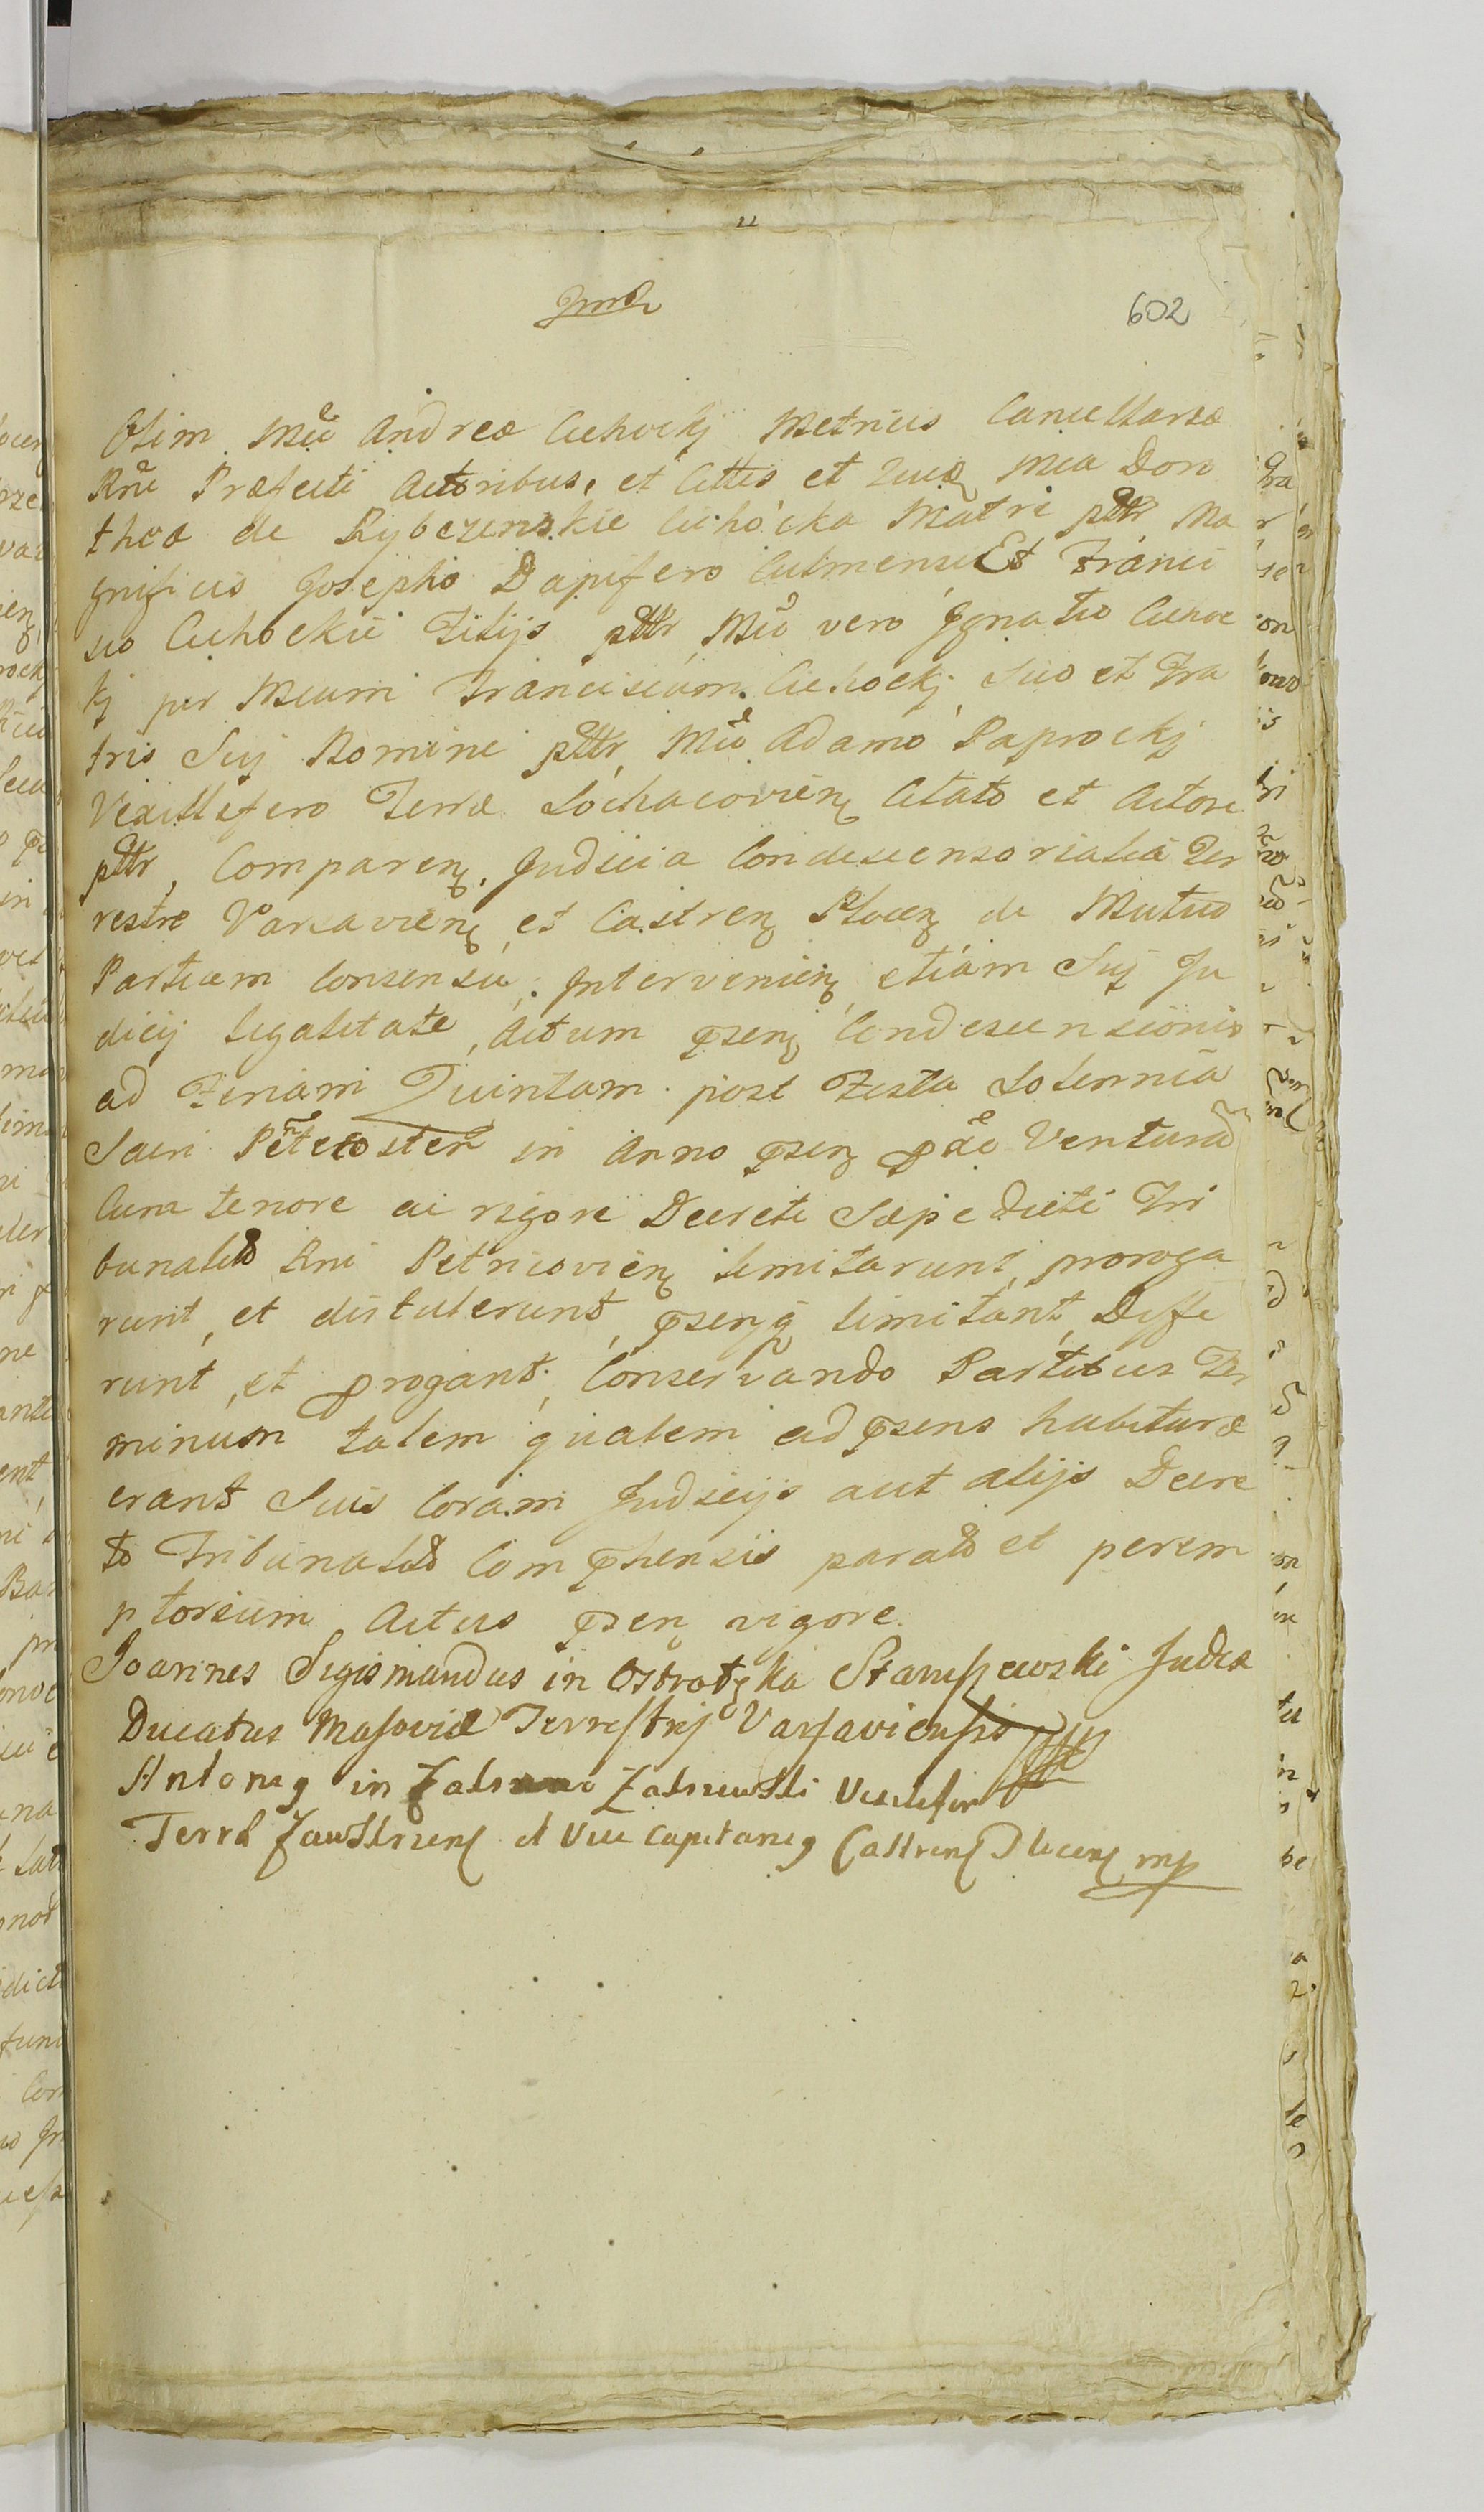 602
Olim Mci Andreæ Cichockj Metrices Cancellariæ
Rni Præfecti Actoribus, et Cittis et quidem Mca Doro
thea de Rybczenskie Cichocka Matre pttr Ma
gnificis Josepho Dapifero Culmensi Et Franci
sco Cichockii Filijs pttr, Mco vero Ignatio Cichoc
kj per Mcum Franciscum Cichockj Suo et Fra
tris Suj Nomine pttr, Mco Adamo Paprockj
Vexillifero Terræ Sochacovien Citato et Actore
pttr, Comparen. Judicia Condescensorialia Ter
restre Varsavien, et Castren Plocen de Mutuo
Partium Consensu, Intervenien etiam Suj Ju
dicij Legalitate, Actum psen Condescensionis
ad Feriam Quintam post Festa Solennia
Sacri Pentecosten in Anno psen pae Venturã
Cum tenore ac rigore Decreti Sæpe dicti Tri
bunalis Rni Petricovien limitarunt, proroga
runt, et distulerunt, psenq limitant, Diffe
runt, et progant, Conservando Partibus Ter
minum talem qualem ad psens habituræ
erant Suis Coram Judicijs aut alijs Decre
to Tribunalis Comphensis parato et perem
ptorium Actus psen vigore.
Joannes Sigismundus in Ostrołęka Staniszewski Judex
Ducatus Masoviæ Terrestrij Varsaviensis mp
Antonig in Zakrzewo Zakrzewski Vexilifer
Terræ Zawkrzen et Vice Capitaneg Castren Plocen mp